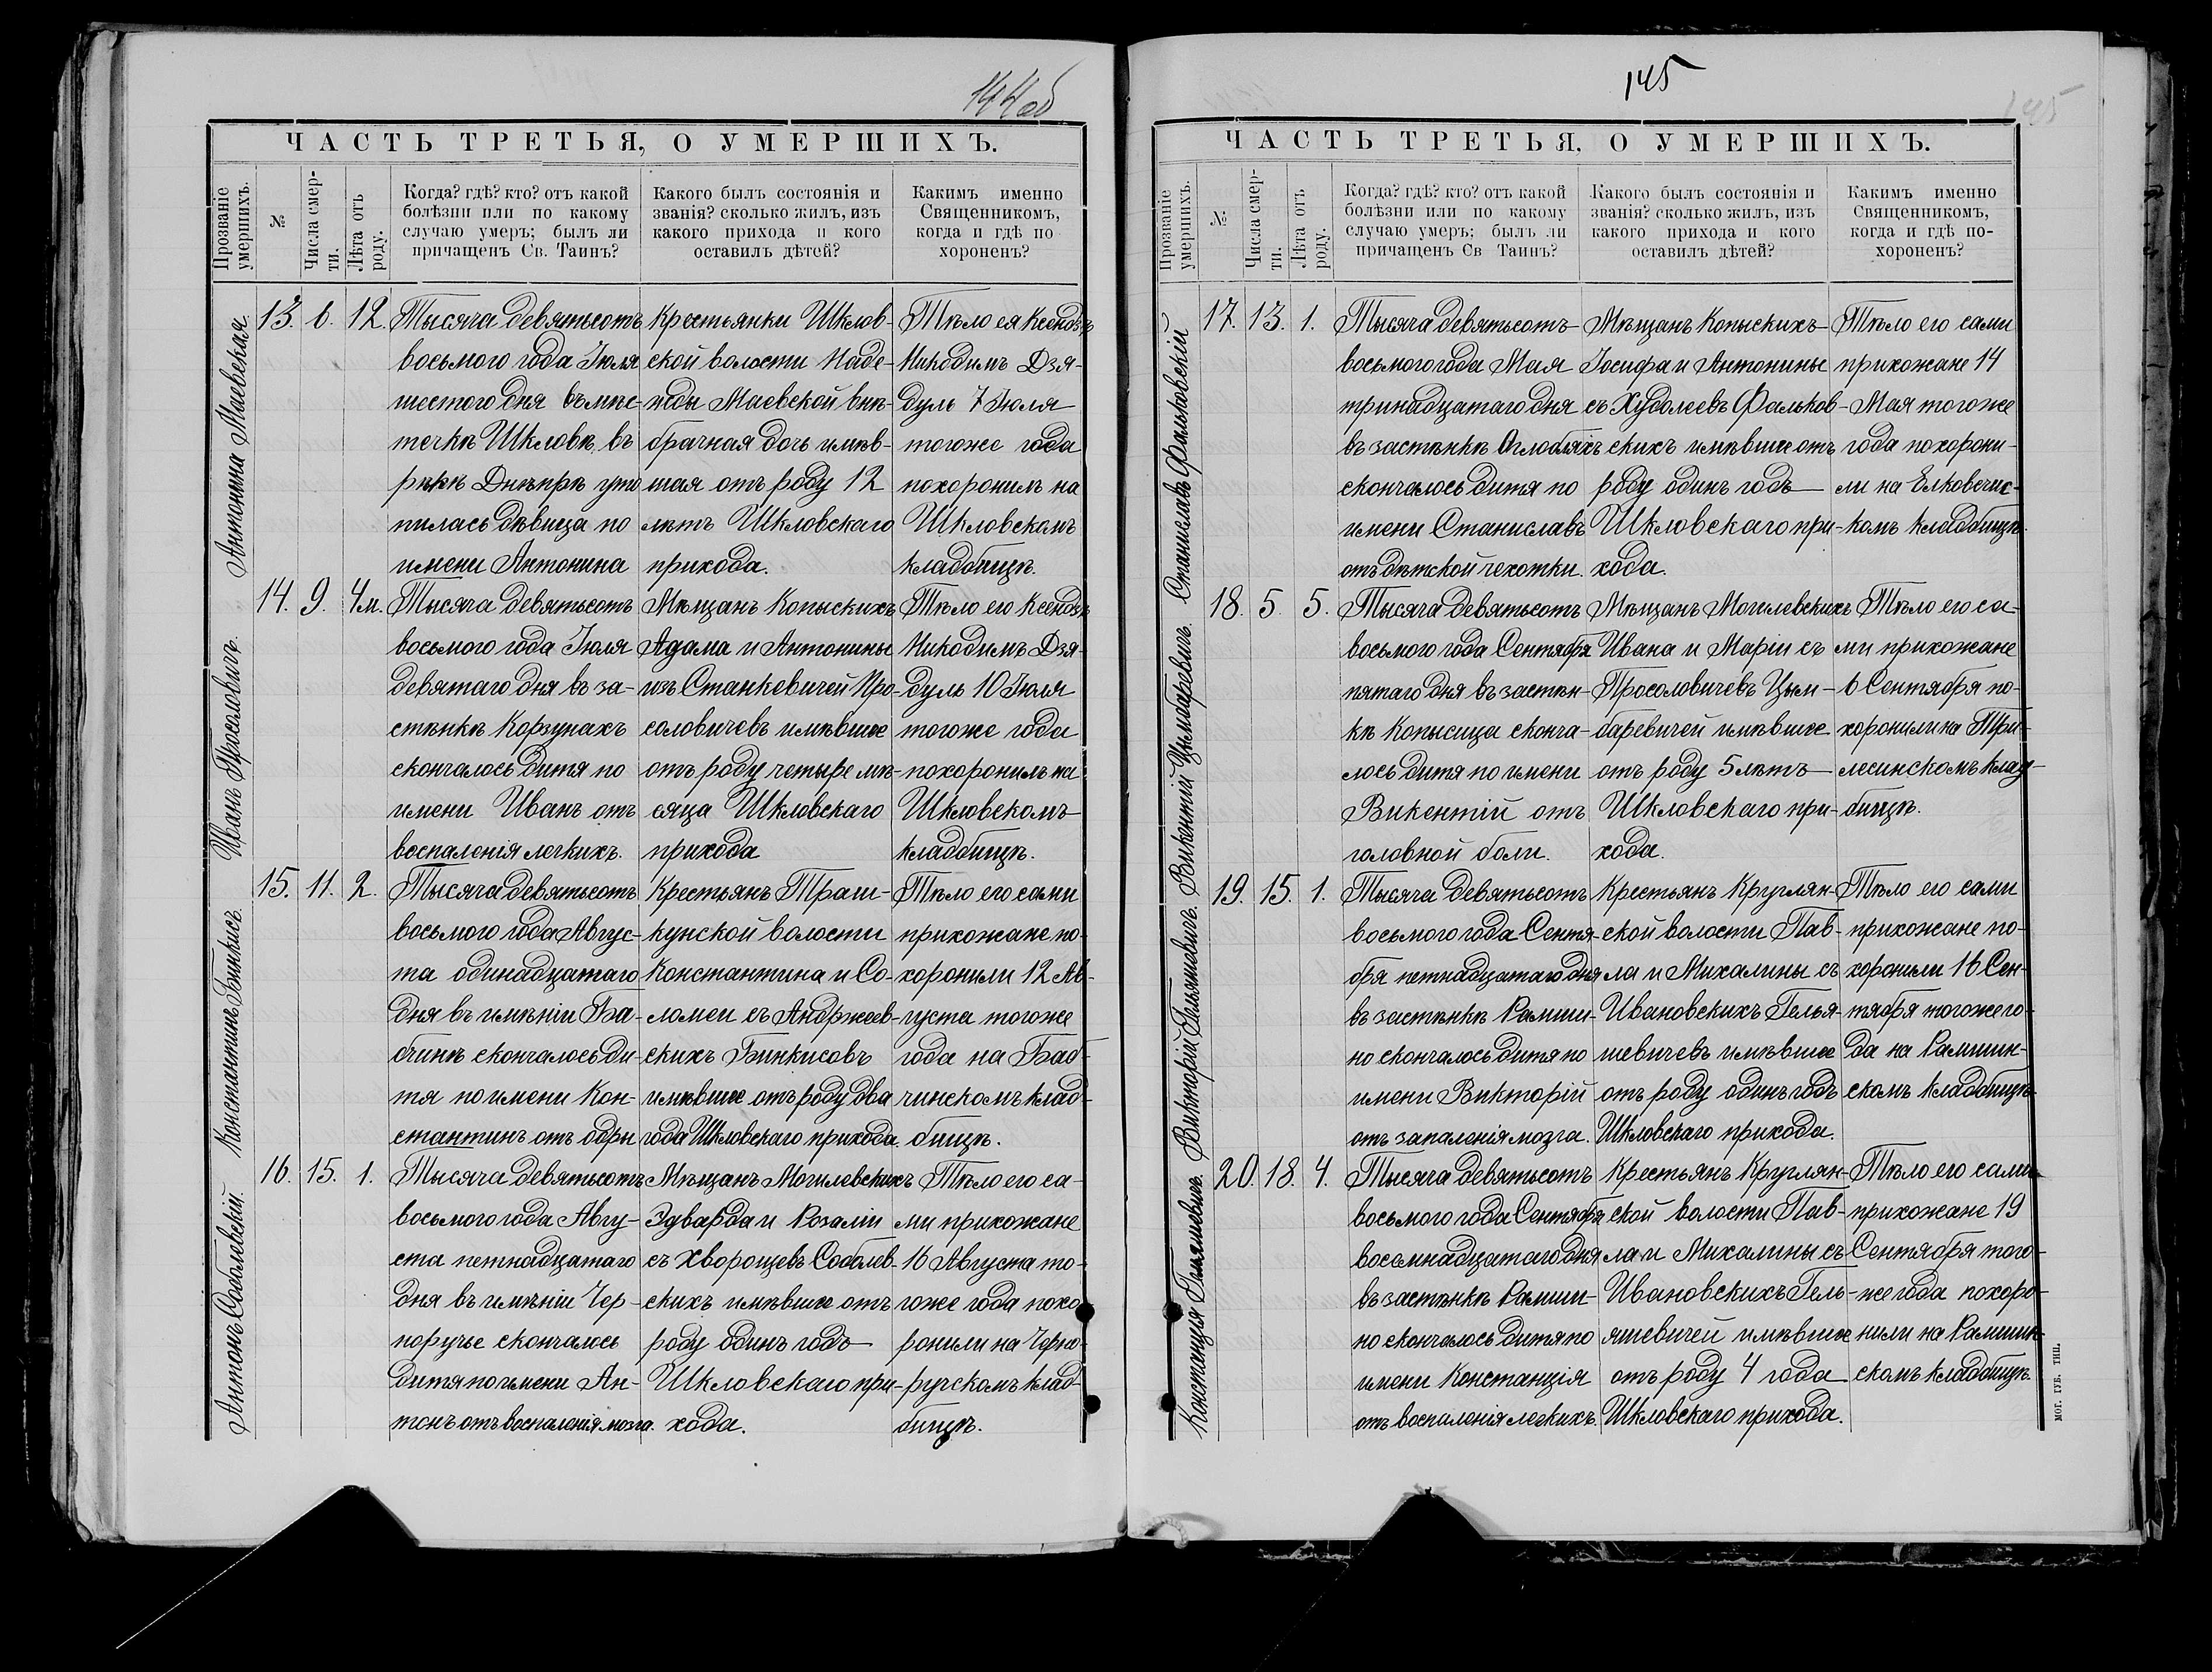 144об
ЧАСТЬ ТРЕТЬЯ, О УМЕРШИХЪ.
Прозваніе умершихъ.
№
Числа смер-
ти.
Лѣта отъ
роду.
Когда? гдѣ? кто? отъ какой
болѣзни или по какому
случаю умеръ; былъ ли
причащенъ Св. Таинъ?
Какого былъ состоянія и
званія? сколько жилъ, изъ
какого прихода и кого
оставилъ дѣтей?
Какимъ именно
Священникомъ,
когда и гдѣ по
хороненъ?
Антонина Маевская.
13. 6. 12.
Тысяча девятьсотъ
восьмого года Іюля
шестого дня въ мѣс-
течкѣ Шкловѣ, въ
рѣкѣ Днѣпрѣ уто
пилась дѣвица по
имени Антонина
Крестьянки Шклов-
ской волости Наде-
жды Маевской внѣ-
брачная дочь имѣв-
шая отъ роду 12
лѣтъ Шкловскаго
прихода.
Тѣло ея Ксендзъ
Никодимъ Дзя-
дуль 7 Іюля
тогоже года
похоронилъ на
Шкловскомъ
кладбищѣ.
Иванъ Просоловичъ.
14. 9. 4м.
Тысяча девятьсотъ
восьмого года Іюля
девятаго дня въ за-
стѣнкѣ Корзунахъ
скончалось дитя по
имени Иванъ отъ
воспаленія легкихъ.
Мѣщанъ Копыскихъ
Адама и Антонины
изъ Станкевичей Про-
соловичевъ имѣвшее
отъ роду четыре мѣ-
сяца Шкловскаго
прихода
Тѣло его Ксендзъ
Никодимъ Дзя-
дуль 10 Іюля
тогоже года
похоронилъ на
Шкловскомъ
кладбищѣ.
Константинъ Бинкисъ.
15. 11. 2.
Тысяча девятьсотъ
восьмого года Авгус-
та одинадцатаго
дня въ имѣніи Ба-
бчинѣ скончалось ди-
тя по имени Кон-
стантинъ отъ одры
Крестьянъ Траш-
кунской волости
Константина и Со-
ломеи съ Анджеев-
скихъ Бинкисовъ
имѣвшее отъ роду два
года Шкловскаго прихода.
Тѣло его сами
прихожане по-
хоронили 12 Ав-
густа тогоже
года на Баб-
чинскомъ клад-
бищѣ.
Антонъ Соболевскій.
16. 15. 1.
Тысяча девятьсотъ
восьмого года Авгу-
ста петнадцатаго
дня въ имѣніи Чер-
норучье скончалось
дитя по имени Ан-
тонъ отъ воспаленія мозга.
Мѣщанъ Могилевскихъ
Эдварда и Розаліи
съ Хворощевъ Соболев-
скихъ имѣвшее отъ
роду одинъ годъ
Шкловскаго при-
хода.
Тѣло его са-
ми прихожане
16 Августа то-
гоже года похо
ронили на Черно-
ручскомъ клад
бищѣ.
145
145
ЧАСТЬ ТРЕТЬЯ, О УМЕРШИХЪ.
Прозваніе умершихъ.
№
Числа смер-
ти.
Лѣта отъ
роду.
Когда? гдѣ? кто? отъ какой
болѣзни или по какому
случаю умеръ; былъ ли
причащенъ Св Таинъ?
Какого былъ состоянія и
званія? сколько жилъ, изъ
какого прихода и кого
оставилъ дѣтей?
Какимъ именно
Священникомъ,
когда и гдѣ по-
хороненъ?
Станиславъ Фальковскій
17. 13. 1.
Тысяча девятьсотъ
восьмого года Мая
тринадцатаго дня
въ застѣнкѣ Оглобляхъ
скончалось дитя по
имени Станиславъ
отъ дѣтской чехотки.
Мѣщанъ Копыскихъ
Іосифа и Антонины
съ Худолеевъ Фальков-
скихъ имѣвшее отъ
роду одинъ годъ
Шкловскаго при-
хода.
Тѣло его сами
прихожане 14
Мая тогоже
года похорони-
ли на Елковечис-
комъ кладбищѣ.
Викентій Цымбаревичъ.
18. 5. 5.
Тысяча девятьсотъ
восьмого года Сентября
пятаго дня въ застѣн-
кѣ Копысица сконча-
лось дитя по имени
Викентій отъ
головной боли.
Мѣщанъ Могилевскихъ
Ивана и Маріи съ
Просоловичевъ Цым-
баревичей имѣвшее
отъ роду 5 лѣтъ
Шкловскаго при-
хода.
Тѣло его са-
ми прихожане
6 Сентября по-
хоронили на Три-
лесинскомъ клад-
бищѣ.
Викторій Гильяшевичъ.
19. 15. 1.
Тысяча девятьсотъ
восьмого года Сентя-
бря петнадцатаго дня
въ застѣнкѣ Рамши-
но скончалось дитя по
имени Викторій
отъ запаленія мозга.
Крестьянъ Круглян-
ской волости Пав-
ла и Михалины съ
Ивановскихъ Гелья-
шевичевъ имѣвшее
отъ роду одинъ годъ
Шкловскаго прихода.
Тѣло его сами
прихожане по-
хоронили 16 Сен-
тября тогоже го-
да на Рамшин-
скомъ кладбищѣ
Констанція Гильяшевичъ.
20. 18. 4.
Тысяча девятьсотъ
восьмого года Сентября
восемнадцатаго дня
въ застѣнкѣ Рамши-
но скончалось дитя по
имени Констанція
отъ воспаленія легкихъ.
Крестьянъ Круглян-
ской волости Пав-
ла и Михалины съ
Ивановскихъ Гель-
яшевичей имѣвшее
отъ роду 4 года
Шкловскаго прихода.
Тѣло его сами
прихожане 19
Сентября того-
же года похоро-
нили на Рамшин-
скомъ кладбищѣ.
МОГ. ГУБ. ТИП.